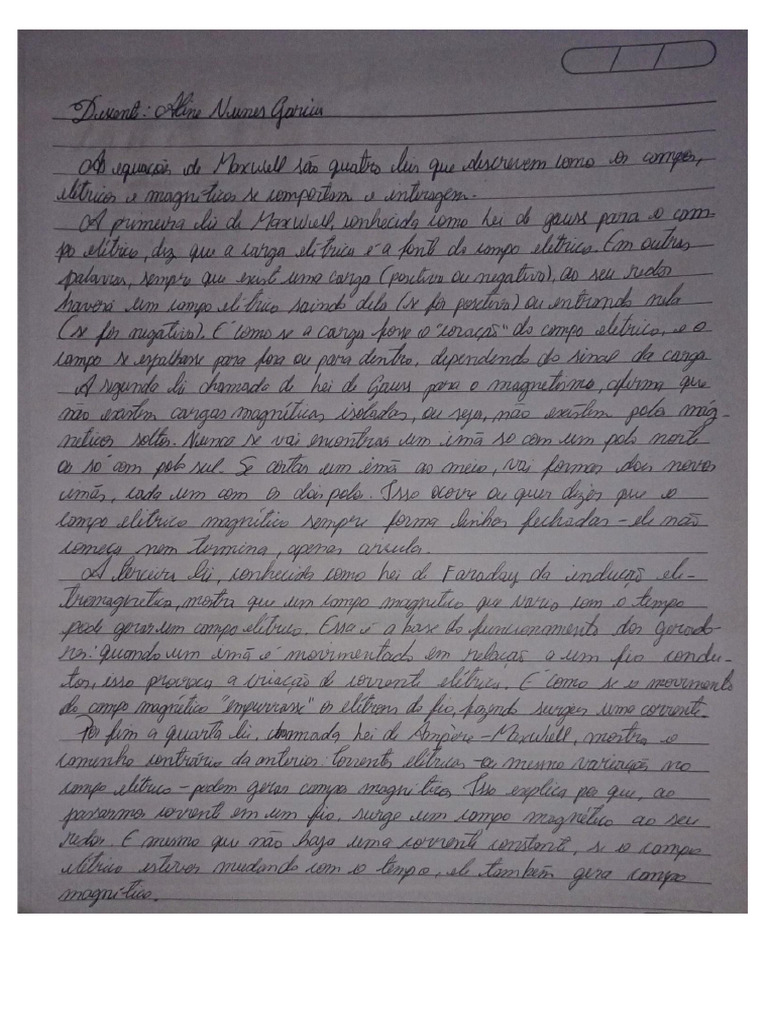 Discente: Aline Nunes Garcia
As equações de Maxwell são quatro leis que descrevem como os campos,
elétricos e magnéticos se comportam e interagem.
A primeira lei de Maxwell, conhecida como lei de gauss para o cam-
po elétrico, diz que a carga elétrica é a fonte do campo elétrico. Em outras
palavras, sempre que existe uma carga (positiva ou negativa), ao seu redor
haverá um campo elétrico saindo dela (se for positiva) ou entrando nela
(se for negativa). É como se a carga fosse o "coração" do campo elétrico, e o
campo se espalhasse para fora ou para dentro, dependendo do sinal da carga.
A segunda lei chamada de lei de Gauss para o magnetismo, afirma que
não existem cargas magnéticas isoladas, ou seja, não existem polos mag-
néticos soltos. Nunca se vai encontrar um imã só com um polo norte
ou só com polo sul. Se cortar um imã ao meio, vai formar dois novos
imãs, cada um com os dois polos. Isso ocorre ou quer dizer que o
campo elétrico magnético sempre forma linhas fechadas - ele não
começa nem termina, apenas circula.
A terceira lei, conhecida como lei de Faraday da indução ele-
tromagnética, mostra que um campo magnético que varia com o tempo
pode gerar um campo elétrico. Essa é a base do funcionamento dos gerado-
res: quando um imã é movimentado em relação a um fio condu-
tor, isso provoca a criação de corrente elétrica. É como se o movimento
do campo magnético "empurrasse" os elétrons do fio, fazendo surgir uma corrente.
Por fim a quarta lei, chamada lei de Ampère-Maxwell, mostra o
caminho contrário da anterior: correntes elétricas - ou mesmo variações no
campo elétrico - podem gerar campos magnéticos. Isso explica por que, ao
passarmos corrente em um fio, surge um campo magnético ao seu
redor. E mesmo que não haja uma corrente constante, se o campo
elétrico estiver mudando com o tempo, ele também gera campo
magnético.